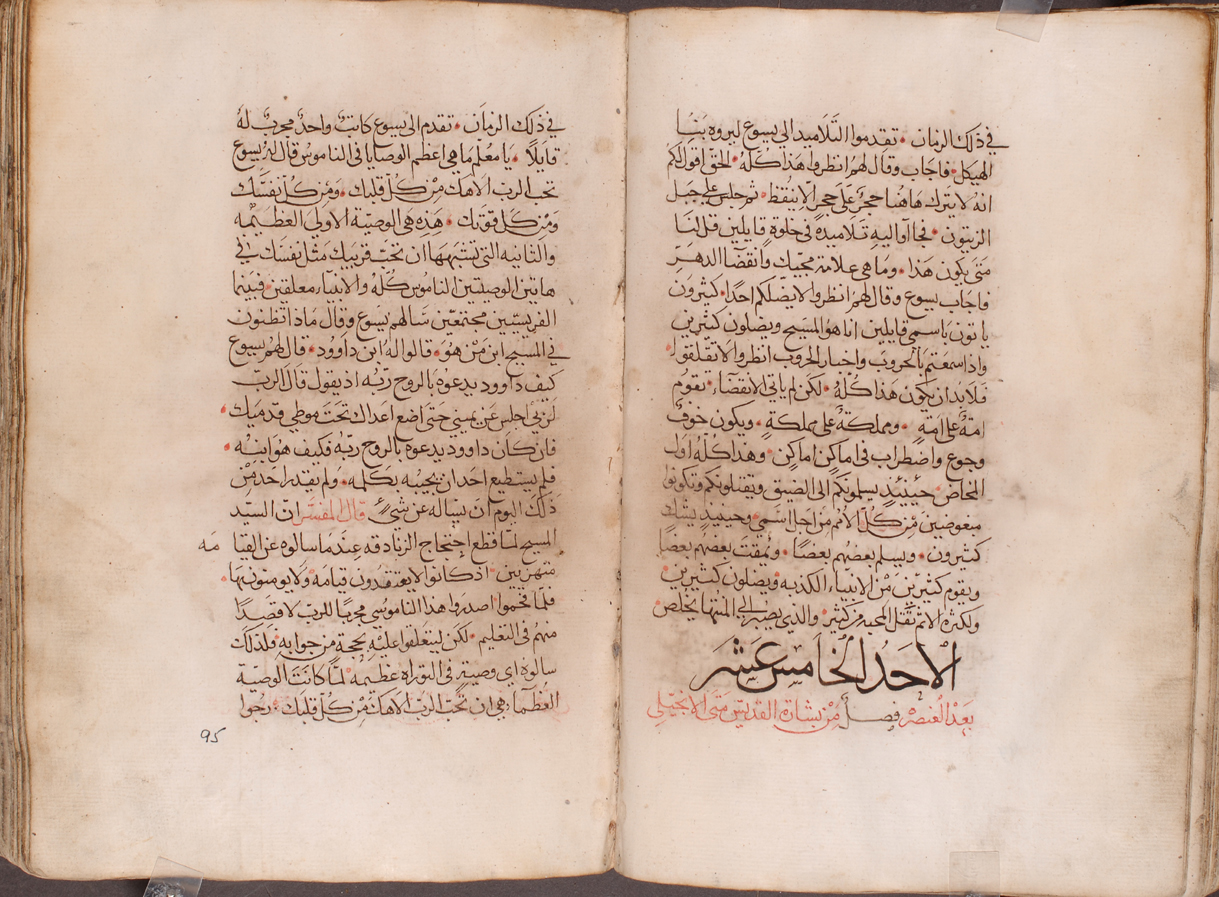 في ذلك الزمان • تقدموا التلاميد الي يسوع ليروه بنا
الهيكل • فاجاب وقال لهم انظروا هذا كله • الحق اقول لكم
انه لا يترك هاهنا حجر علي حجر الا ينقط • ثم جلس علي جبل
الزيتون • فجااوا اليه تلاميده في خلوة قايلين قل لنا
متي يكون هذا • وما هي علامة مجيك وانقضا الدهر
فاجاب يسوع وقال لهم انظروا لا يضلكم احدا • كثيرون
ياتون باسمي قايلين انا هو المسيح ويضلون كثيرين
واذا سمعتم بالحروب واخبار الحروب انظروا لا تقلقوا •
فلا بد ان يكون هذا كله • لكن لم ياتي الانقضاء • تقوم
امة علي امة • ومملكة علي مملكة • ويكون خوف
وجوع واضطراب في اماكن اماكن • وهذا كله اول
المخاض • حينيد يسلمونكم الي الضيق ويقتلونكم وتكونوا
مبغوضين من كل الامم من اجل اسمي • وحينيد يشك
كثيرون • ويسلم بعضهم بعضا • ويمقت بعضهم بعضا
ويقوم كثيرين من الانبياء الكدبه ويضلون كثيرين •
ولكثرة الاثم تقل المحبه من كثير • والذي يصبر الي المنتها يخلص •
الاحد الخامس عشر
بعد العنصره فصل من بشارة القديس متي الانجيلي
في ذلك الزمان • تقدم الي يسوع كاتب واحد مجرب له
قايلا • يا معلم ما هي اعظم الوصايا في الناموس قال له يسوع
تحب الرب الاهك من كل قلبك • ومن كل نفسك
ومن كل قوتك • هذه هي الوصية الاولي العظيمه
والثانيه التي تشبهها ان تحب قريبك مثل نفسك في
هاتين الوصيتين الناموس كله والانبياء معلقين • فبينما
الفريسيين مجتمعين سالهم يسوع وقال ماذا تظنون
في المسيح ابن من هو • قالوا له ابن داوود • قال لهم يسوع
كيف داوود يدعوه بالروح ربه اذ يقول قال الرب
لربي اجلس عن يميني حتي اضع اعداك تحت موطي قدميك •
فان كان داوود يدعوه بالروح ربه فكيف هو ابنه •
فلم يستطيع احد ان يجيبه بكلمه • ولم يقدر احد من
ذلك اليوم ان يساله عن شي • قال المفسر ان السيد
المسيح لما قطع احتجاج الزنادقه عندما سالوه عن القيا
مه
متهزيين • اذ كانوا لا يعتقدون قيامه ولا يومنون بها •
فلما فحموا اصدروا هذا الناموسي مجربا للرب لا قصدا
منهم في التعليم • لكن ليتعلقوا عليه بحجة من جوابه • فلذلك
سالوه اي وصية في التوراه عظيمه • لما كانت الوصية
العظما هي ان تحب الرب الاهك من كل قلبك • رجوا
95